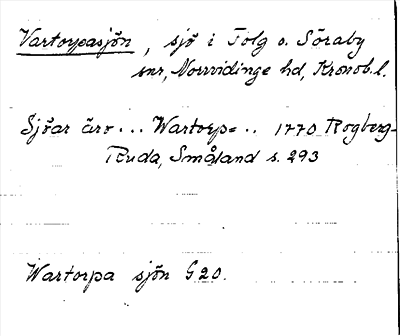 Vartorpasjön, sjö i Tolg o. Söraby
snr, Norrvidinge hd, Kronob. l.
Sjöar äro ... Wartorp= .. 1770 Rogberg-
Ruda, Småland s. 293
Wartorpa sjön G20.